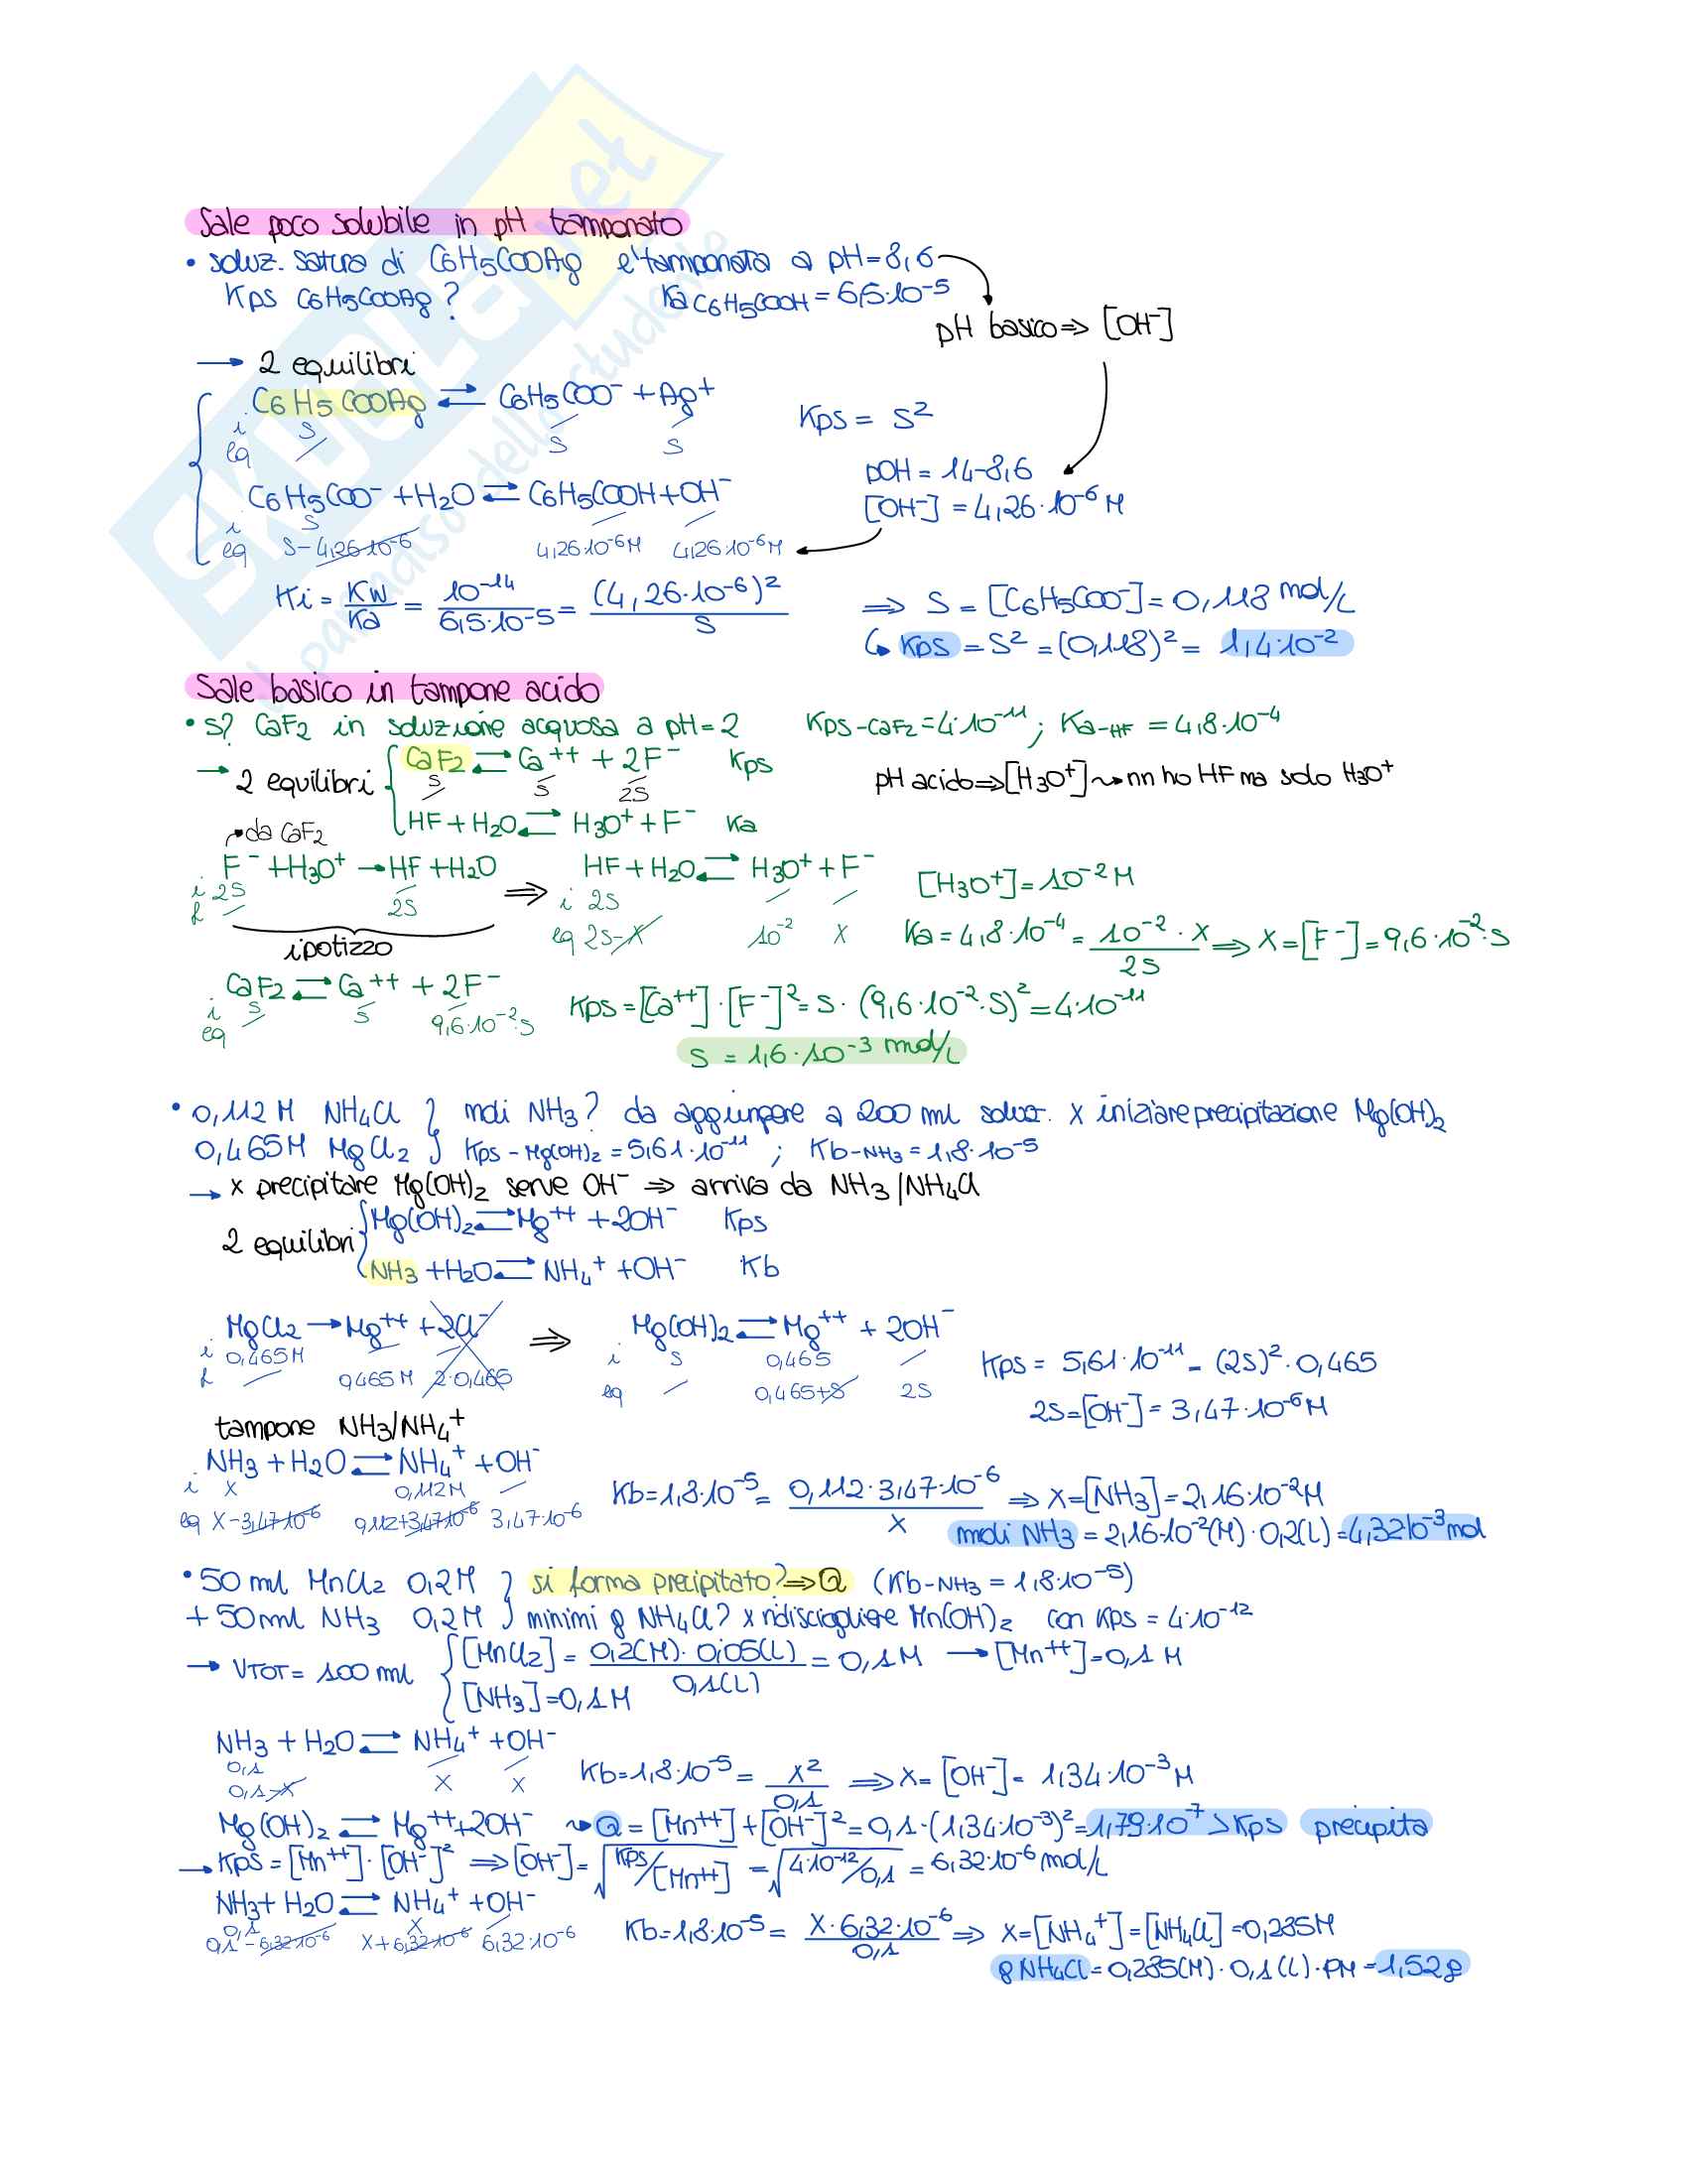 Sale poco solubile in pH tamponato
• soluz. satura di C6H5COOAg e' tamponata a pH=8,6
Kps C6H5COOAg? Ka C6H5COOH = 6,5·10⁻⁵
pH basico ⇒ [OH⁻]
→ 2 equilibri
C6H5COOAg ⇌ C6H5COO⁻ + Ag⁺ Kps = S²
i S / /
eq / S S
pOH = 14-8,6
C6H5COO⁻ + H2O ⇌ C6H5COOH + OH⁻ [OH⁻] = 4,26·10⁻⁶ M
i S / /
eq S-4,26·10⁻⁶ 4,26·10⁻⁶M 4,26·10⁻⁶M
Ki = Kw/Ka = 10⁻¹⁴/6,5·10⁻⁵ = (4,26·10⁻⁶)²/S ⇒ S = [C6H5COO⁻] = 0,118 mol/L
↳ Kps = S² = (0,118)² = 1,4·10⁻²
Sale basico in tampone acido
• s? CaF2 in soluzione acquosa a pH=2 Kps-CaF2 = 4·10⁻¹¹ ; Ka-HF = 4,8·10⁻⁴
→ 2 equilibri { CaF2 ⇌ Ca⁺⁺ + 2F⁻ Kps
S / S 2S
pH acido ⇒ [H3O⁺] ⇝ nn ho HF ma solo H3O⁺
HF + H2O ⇌ H3O⁺ + F⁻ Ka
da CaF2
F⁻ + H3O⁺ → HF + H2O ⇒ HF + H2O ⇌ H3O⁺ + F⁻ [H3O⁺] = 10⁻² M
i 2S / i 2S / /
f / 2S eq 2S-X 10⁻² X
Ka = 4,8·10⁻⁴ = 10⁻²·X/2S ⇒ X = [F⁻] = 9,6·10⁻²·S
ipotizzo
CaF2 ⇌ Ca⁺⁺ + 2F⁻ Kps = [Ca⁺⁺]·[F⁻]² = S·(9,6·10⁻²·S)² = 4·10⁻¹¹
i S / /
eq / S 9,6·10⁻²·S
S = 1,6·10⁻³ mol/L
• 0,112 M NH4Cl } moli NH3? da aggiungere a 200 ml soluz. x iniziare precipitazione Mg(OH)2
0,465M MgCl2 } Kps-Mg(OH)2 = 5,61·10⁻¹¹ ; Kb-NH3 = 1,8·10⁻⁵
→ x precipitare Mg(OH)2 serve OH⁻ ⇒ arriva da NH3/NH4Cl
2 equilibri { Mg(OH)2 ⇌ Mg⁺⁺ + 2OH⁻ Kps
NH3 + H2O ⇌ NH4⁺ + OH⁻ Kb
MgCl2 → Mg⁺⁺ + 2Cl⁻ ⇒ Mg(OH)2 ⇌ Mg⁺⁺ + 2OH⁻
i 0,465M / / i S 0,465 /
f / 0,465M 2·0,465 eq / 0,465+S 2S
Kps = 5,61·10⁻¹¹ = (2S)²·0,465
2S = [OH⁻] = 3,47·10⁻⁶M
tampone NH3/NH4⁺
NH3 + H2O ⇌ NH4⁺ + OH⁻
i X 0,112M /
eq X-3,47·10⁻⁶ 0,112+3,47·10⁻⁶ 3,47·10⁻⁶
Kb = 1,8·10⁻⁵ = 0,112·3,47·10⁻⁶/X ⇒ X = [NH3] = 2,16·10⁻²M
moli NH3 = 2,16·10⁻²(M)·0,2(L) = 4,32·10⁻³mol
• 50 ml MnCl2 0,2M } si forma precipitato? ⇒ Q (Kb-NH3 = 1,8·10⁻⁵)
+ 50 ml NH3 0,2M } minimi g NH4Cl? x ridisciogliere Mn(OH)2 con Kps = 4·10⁻¹²
→ VTOT = 100 ml { [MnCl2] = 0,2(M)·0,05(L)/0,1(L) = 0,1M → [Mn⁺⁺] = 0,1 M
[NH3] = 0,1M
NH3 + H2O ⇌ NH4⁺ + OH⁻
0,1 / /
0,1-X X X
Kb = 1,8·10⁻⁵ = X²/0,1 ⇒ X = [OH⁻] = 1,34·10⁻³M
Mg(OH)2 ⇌ Mg⁺⁺ + 2OH⁻ ⇝ Q = [Mn⁺⁺] + [OH⁻]² = 0,1·(1,34·10⁻³)² = 1,79·10⁻⁷ > Kps precipita
→ Kps = [Mn⁺⁺]·[OH⁻]² ⇒ [OH⁻] = √Kps/[Mn⁺⁺] = √4·10⁻¹²/0,1 = 6,32·10⁻⁶ mol/L
NH3 + H2O ⇌ NH4⁺ + OH⁻
0,1 X /
0,1-6,32·10⁻⁶ X+6,32·10⁻⁶ 6,32·10⁻⁶
Kb = 1,8·10⁻⁵ = X·6,32·10⁻⁶/0,1 ⇒ X = [NH4⁺] = [NH4Cl] = 0,285M
g NH4Cl = 0,285(M)·0,1(L)·PM = 1,52g
SKUOLA.net
il paradiso dello studente